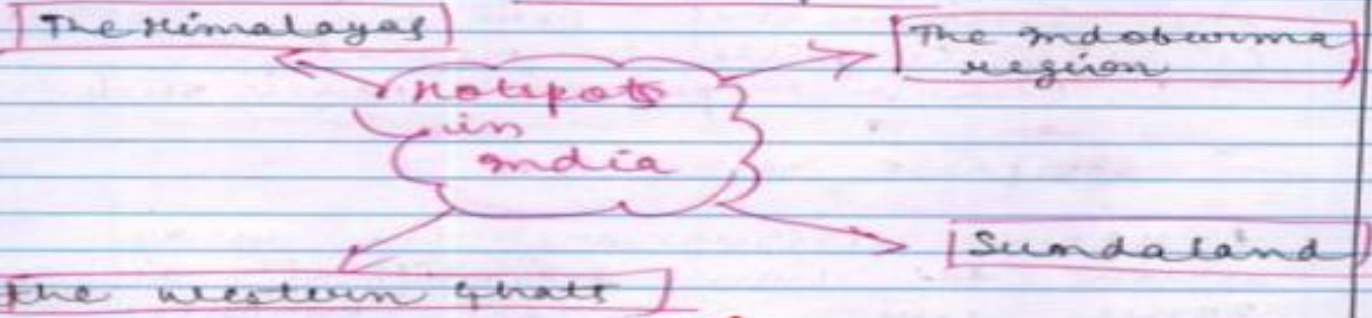 The Himalayas
The Indoburma
region
Hotspots
in
India
Sundaland
The Western Ghats